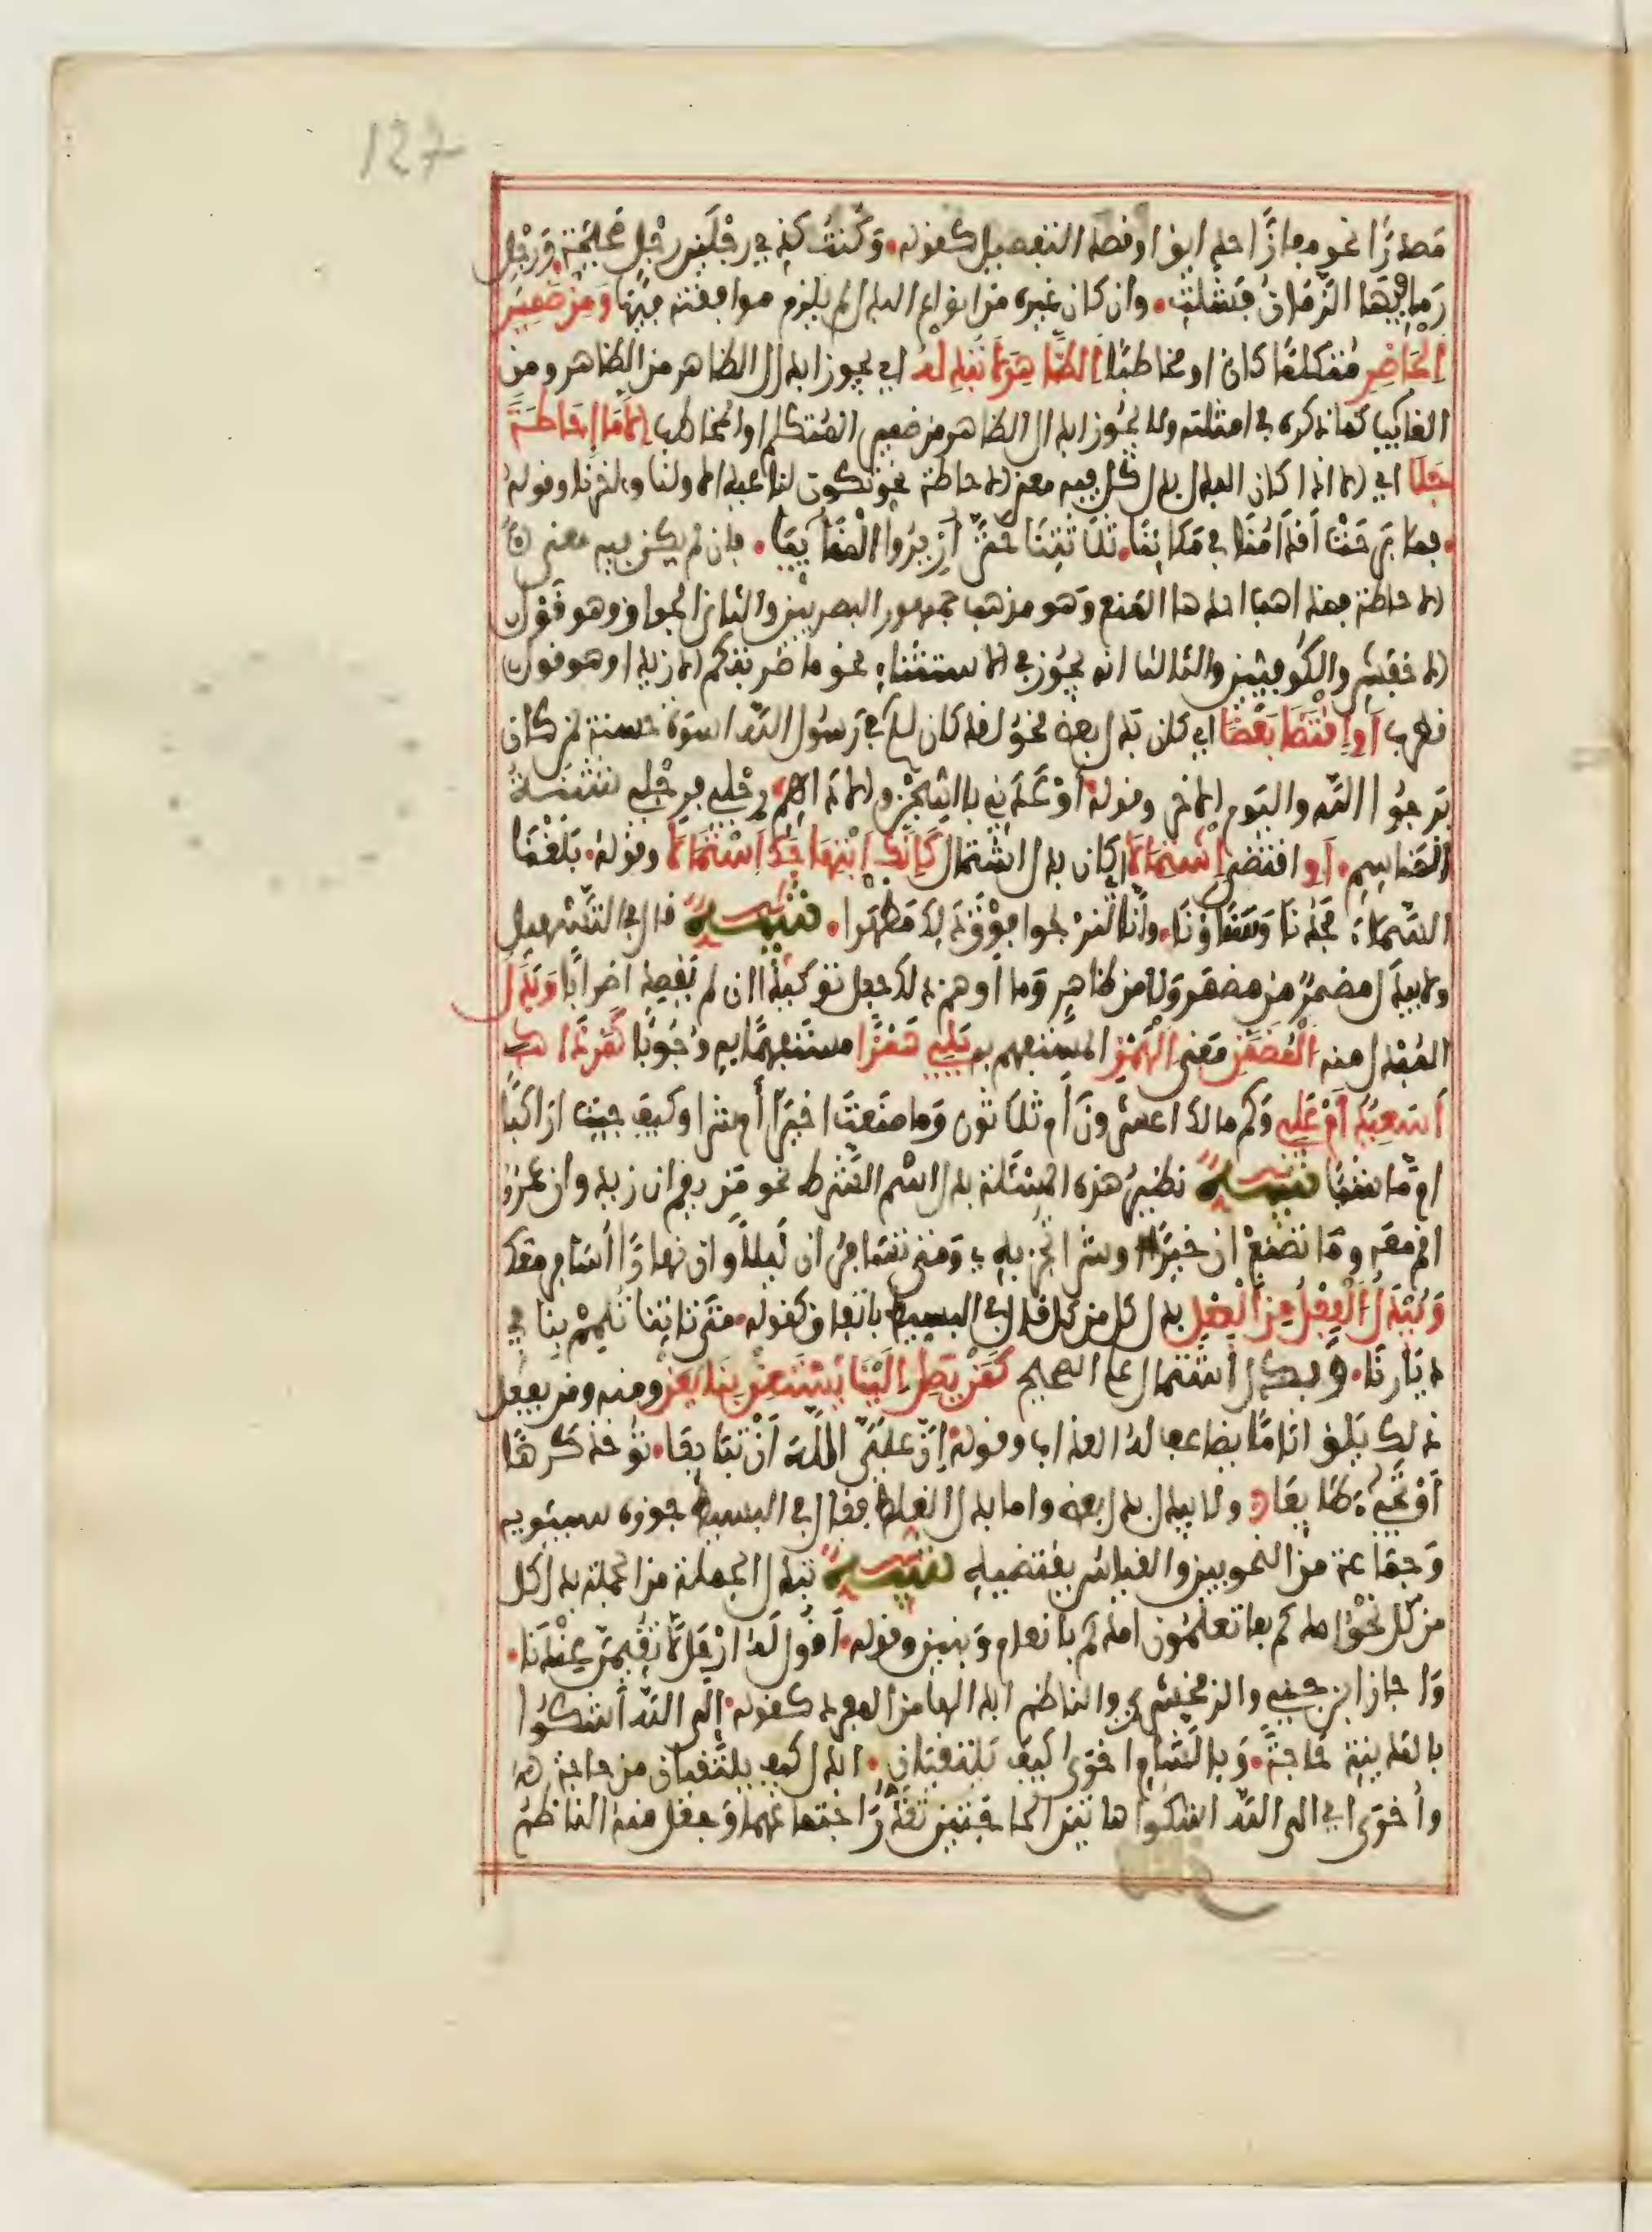 127
مصدرا نحو مفازا حدايق او قصد التفصيل كقوله وكنت كذي رجلين رجل صحيحة ورجل
رما فيها الزمان فشلت وان كان غيره من انواع البدل لم يلزم موافقته فيها ومن ضمير
الحاضر متكلما كان او مخاطبا الظاهر لا تبدله اي يجوز ابدال الظاهر من الظاهر ومن
الغايب كما ذكره في امثلته ولا يجوز ابدال الظاهر من ضمير المتكلم او المخاطب الا ما احاطة
جلا اي الا اذا كان البدل بدل كل فيه معنى الاحاطة نحو تكون لنا عيدا لاولنا واخرنا وقوله
فما برحت اقدامنا في مكاننا ثلاثتنا حتى ازيروا المنائيا فان لم يكن فيه معنى
الاحاطة فمذاهب احدها المنع وهو مذهب جمهور البصريين والثاني الجواز وهو قول
الاخفش والكوفيين والثالث انه يجوز في الاستثناء نحو ما ضربتكم الا زيدا وهو قول
قطرب او اقتضا بعضا اي كان بدل بعض نحو لقد كان لكم في رسول الله اسوة حسنة لمن كان
يرجوا الله واليوم الاخر وقوله اوعدني بالسجن والاداهم رجلي فرجلي شثنة
المناسم او اقتضى اشتمالا اي كان بدل اشتمال كانك ابتهاجك استمالا وقوله بلغنا
السماء مجدنا وسناؤنا وانا لنرجوا فوق ذلك مظهرا تنبيه قال في التسهيل
ولا يبدل مضمر من مضمر ولا من ظاهر وما اوهم ذلك جعل توكيدا ان لم يفد اضرابا وبدل
المبدل منه المضمن معنى الهمز المستفهم به يلي همزا مستفهما به وجوبا كمن ذا
اسعيد ام علي وكم مالك اعشرون ام ثلاثون وما صنعت اخيرا ام شرا وكيف جيت اراكبا
ام ماشيا تنبيه نظير هذه المسئلة بدل اسم الشرط نحو من يقم ان زيد وان عمرو
اقم معه وما تصنع ان خيرا وشرا تجز به ومتى تسافر ان ليلا وان نهارا اسافر معك
ويبدل الفعل من الفعل بدل كل من كل قال في البسيط باتفاق كقوله متى تاتنا تلمم بنا في
ديارنا وبدل اشتمال على الصحيح كمن يصل الينا يستعن بنا يعن ومنه ومن يفعل
ذلك يلق اثاما يضاعف له العذاب وقوله ان علي الله ان تبايعا توخذ كرها
او تجيء طايعا ولا يبدل بدل بعض واما بدل الغلط فقال في البسيط جوزه سيبويه
وجماعة من النحويين والقياس يقتضيه تنبيه تبدل الجملة من الجملة بدل كل
من كل نحو امدكم بما تعلمون امدكم بانعام وبنين وقوله اقول له ارحل لا تقيمن عندنا
واجاز ابن جني والزمخشري والناظم ابدالها من المفرد كقوله الى الله اشكوا
بالمدينة حاجة وبالشام اخرى كيف يلتقيان ابدل كيف يلتقيان من حاجة
واخرى اي الى الله اشكوا هاتين الحاجتين تعذر اجتماعهما وجعل منه الناظم